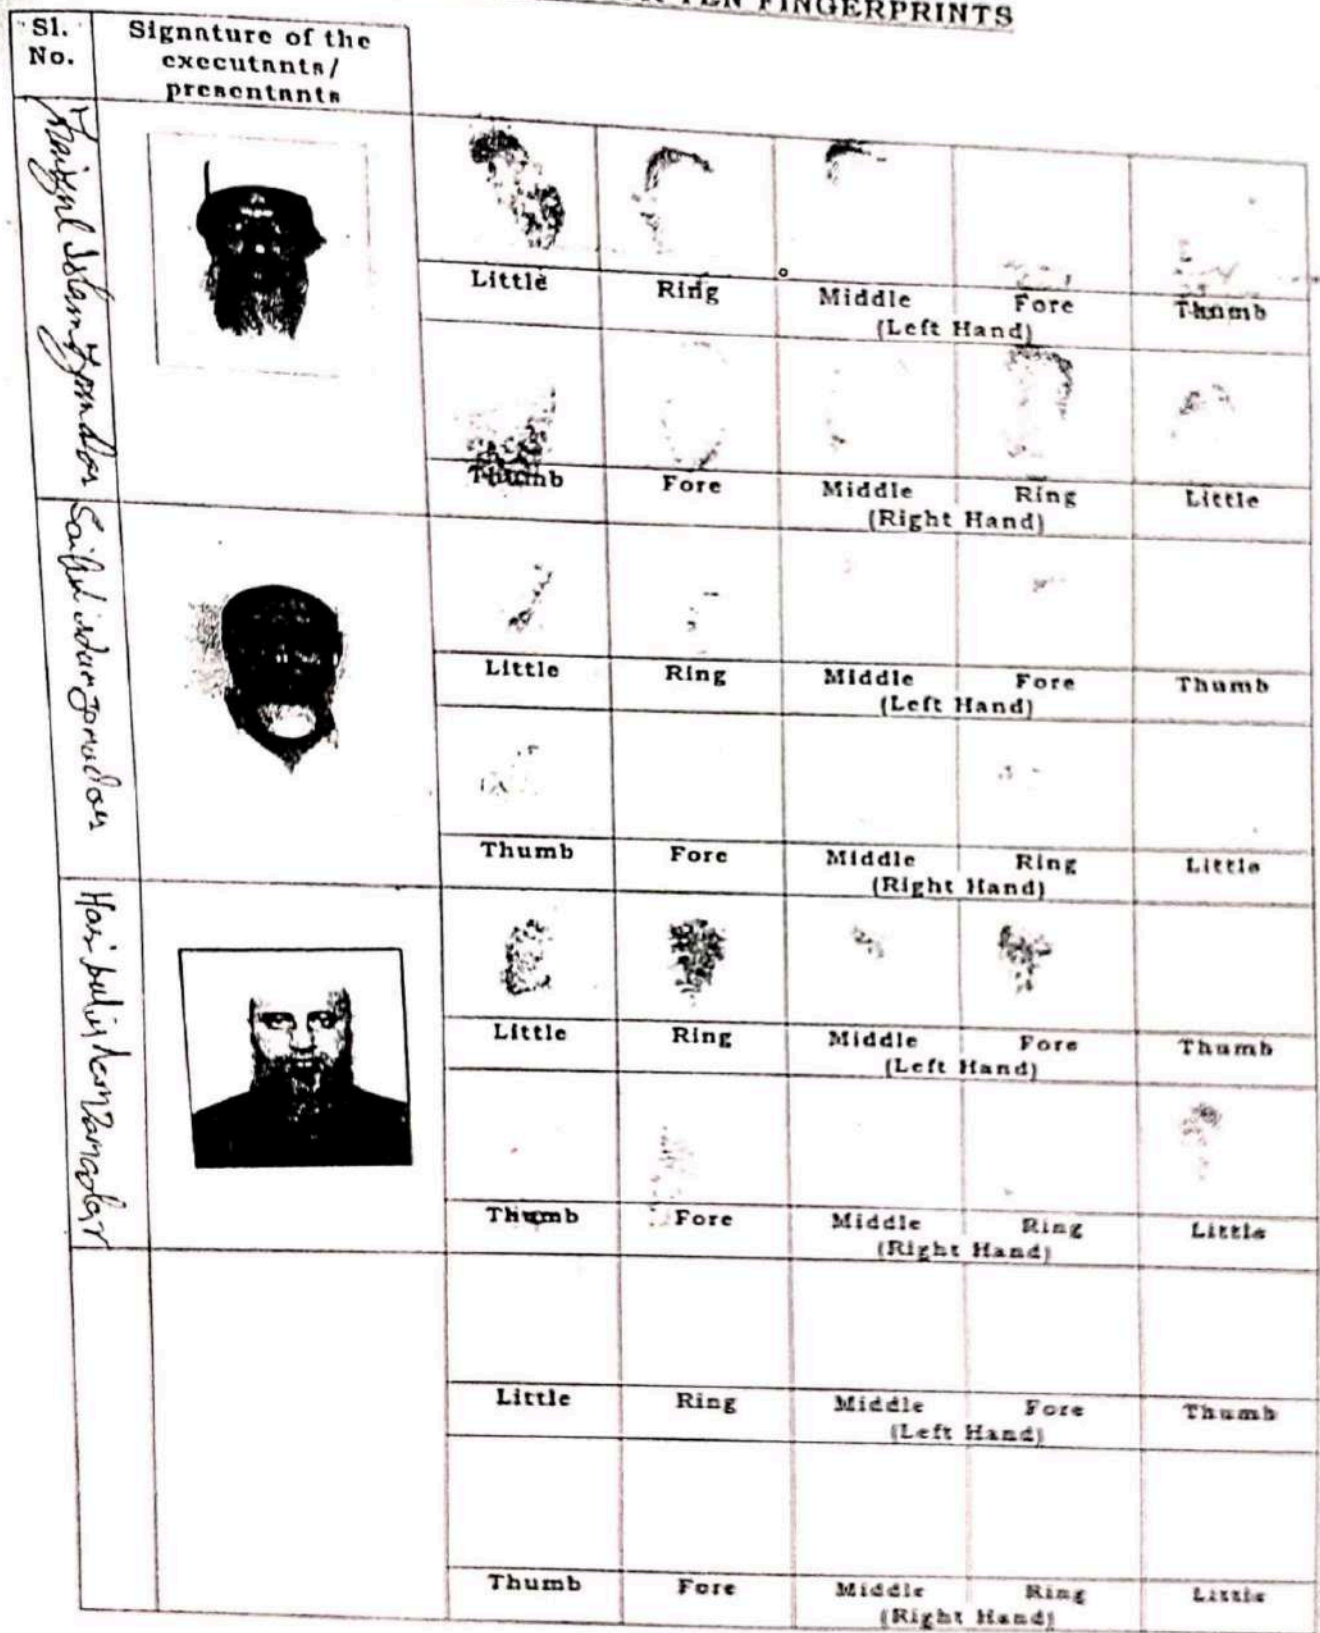 TEN FINGERPRINTS
Sl. No.
Signature of the
executants/
presentants
Little Ring Middle Fore Thumb
(Left Hand)
Thumb Fore Middle Ring Little
(Right Hand)
Little Ring Middle Fore Thumb
(Left Hand)
Thumb Fore Middle Ring Little
(Right Hand)
Little Ring Middle Fore Thumb
(Left Hand)
Thumb Fore Middle Ring Little
(Right Hand)
Little Ring Middle Fore Thumb
(Left Hand)
Thumb Fore Middle Ring Little
(Right Hand)